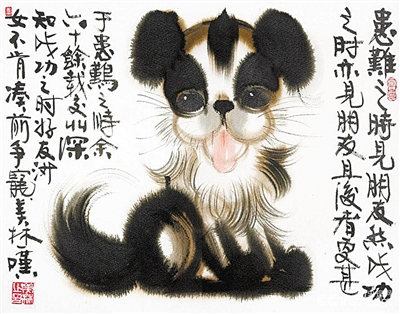 患難之時見朋友然成功
之時亦見朋友且後者更甚
于患難之時余
六十餘載深
知成功之時好友
女不肯凑前争寵美林